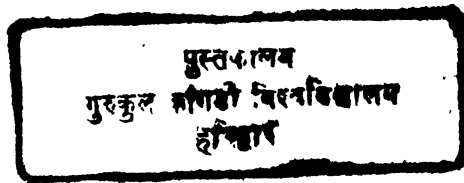 पुस्तकालय
गुरुकुल कांगड़ी विश्वविद्यालय
हरिद्वार